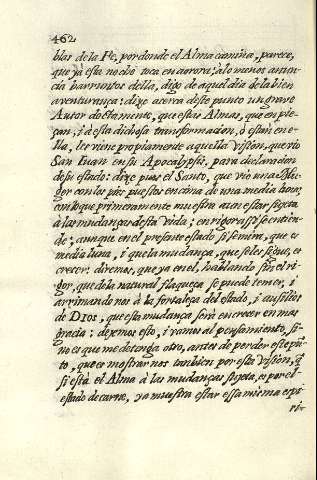 462
blas de la Fe, por donde el Alma camina, parece,
que ya esta noche toca en aurora; à lo menos anun-
cia barruntos della, digo de aquel dia de la bien
aventurança: dixo acerca deste punto un grave
Autor doctamente, que estas Almas, que empie-
çan, i à esta dichosa transformacion, ò estàn en e-
lla, les viene propiamente aquella Vission, que viò
San Iuan en su Apocalypsi, para declaracion
de su estado: dize pues el Santo, que viò una Mu-
ger con los pies puestos encima de una media luna;
con lo que primeramente muestra aun estar sujeta
à las mudanças desta vida; en rigor assi se entien-
de; aunque en el presente estado si se mira, que es
media luna, i que la mudança, que se le sigue, es
crecer; diremos, que ya en el, hablando sin el ri-
gor, que de la natural flaqueza se puede temer, i
arrimando nos à la fortaleza del estado, i ausilios
de Dios, que esta mudança serà en crecer en mas
gracia: dexemos esto, i vamos al pensamiento, si-
no es que me detenga otro, antes de perder este pũ-
to, que es mostrar nos tanbien por esta Vision, q̃
si està el Alma à las mudanças sujeta, es por el
estado de carne, ya muestra estar essa misma espi
ri-